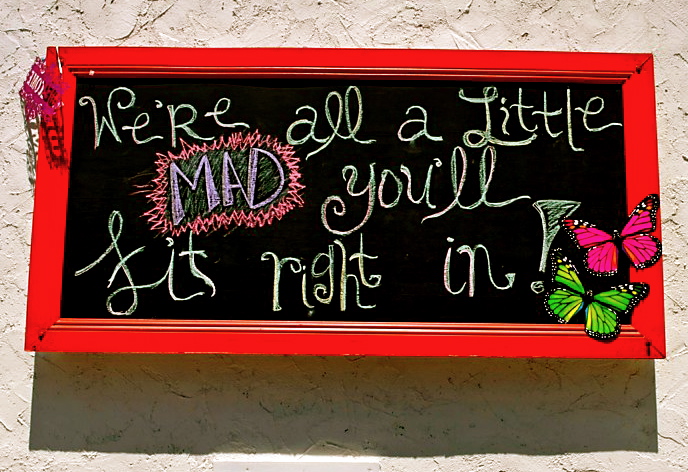 We're all a Little
MAD you'll
fits right in!